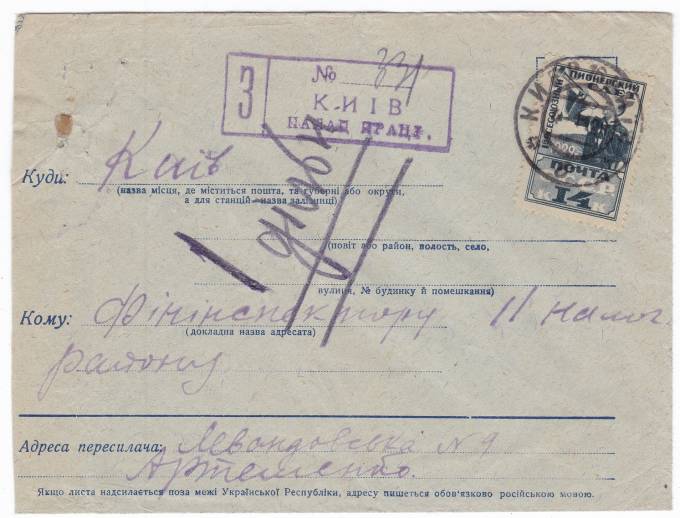 З
№ 331
КИІВ
ПАЛАЦ ПРАЦІ.
ВСЕСОЮЗНЫЙ ПИОНЕРСКИЙ СЛЕТ
ПОЧТА
СССР
К 14 К
Куди: Київ
(назва місця, де міститься пошта, та губерні або округи,
а для станцій—назва залізниці)
(повіт або район, волость, село,
вулиця, № будинку й помешкання)
Кому: Фінінспектору 11 налог.
(докладна назва адресата)
району
Адреса пересилача: Левандовська № 9
Артеменко.
Якщо листа надсилається поза межі Української Республіки, адресу пишеться обов'язково російською мовою.